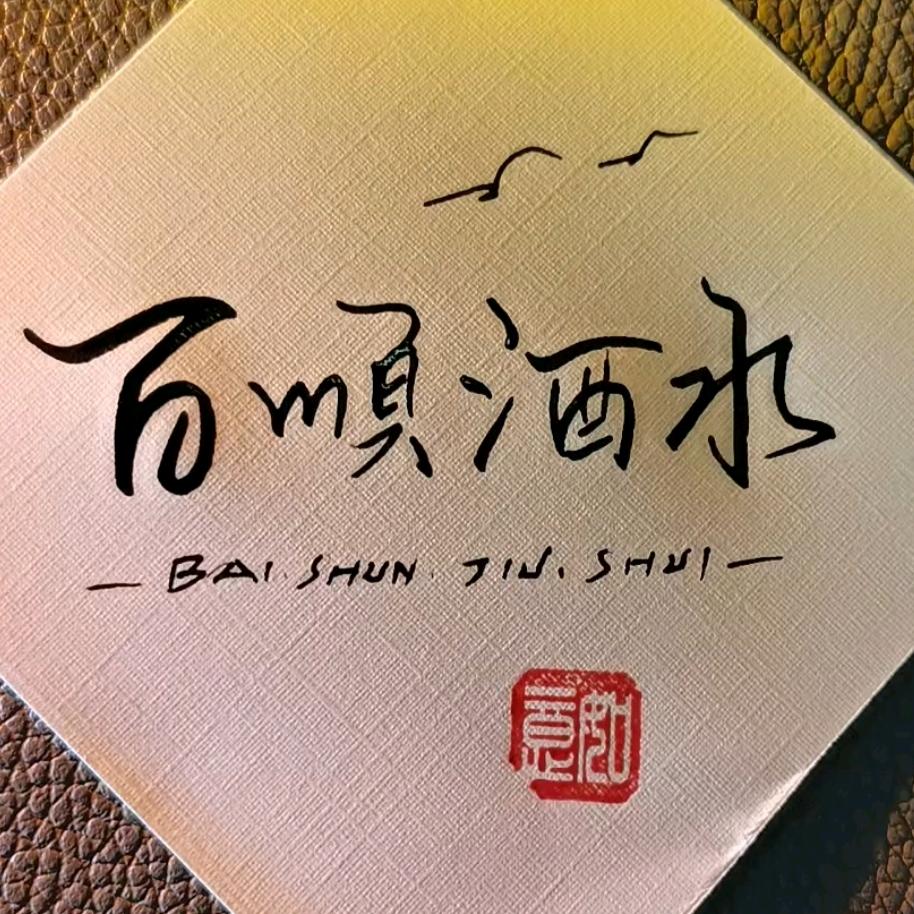 百順酒水
BAI. SHUN. JIU. SHUI
如意